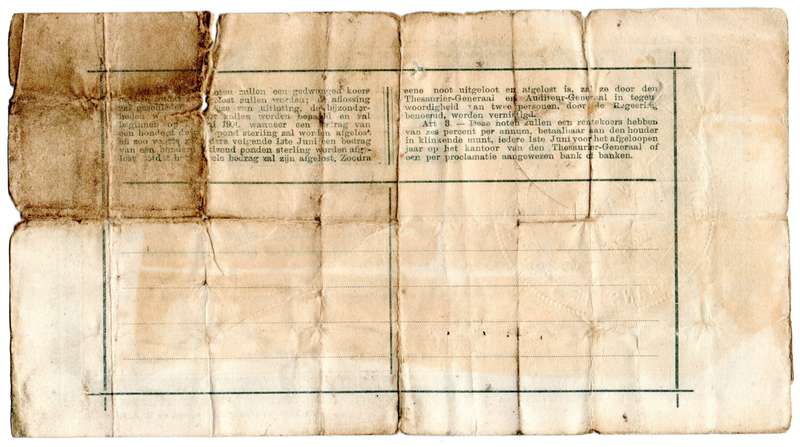 noten zullen een gedwongen koers
gelost zullen worden; de aflossing
zal geschieden uitloting, de bijzonder-
zullen worden bepaald en zal
beginnen op 190, wanneer een bedrag van
een honderd d pond sterling zal worden afgelost
en zoo voorts volgende 1ste Juni een bedrag
van een honderd duizend ponden sterling worden afge-
lost totdat h geheele bedrag zal zijn afgelost, Zoodra
eene noot uitgeloot en afgelost is, zal ze door den
Thesaurier-Generaal en Auditeur-Generaal in tegen
woordigheid van twee personen, door de Regeering
benoemd, worden vernietigd.
Art 3 — Deze noten zullen een rentekoers hebben
van zes percent per annum, betaalbaar aan den houder
in klinkende munt, iedere 1ste Juni voor het afgeloopen
jaar op het kantoor van den Thesaurier-Generaal of
een per proclamatie aangewezen bank of banken.